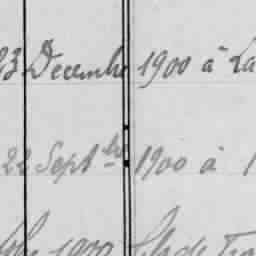 23 Decembre 1900 à La
22 Sept bre 1900 à
1900